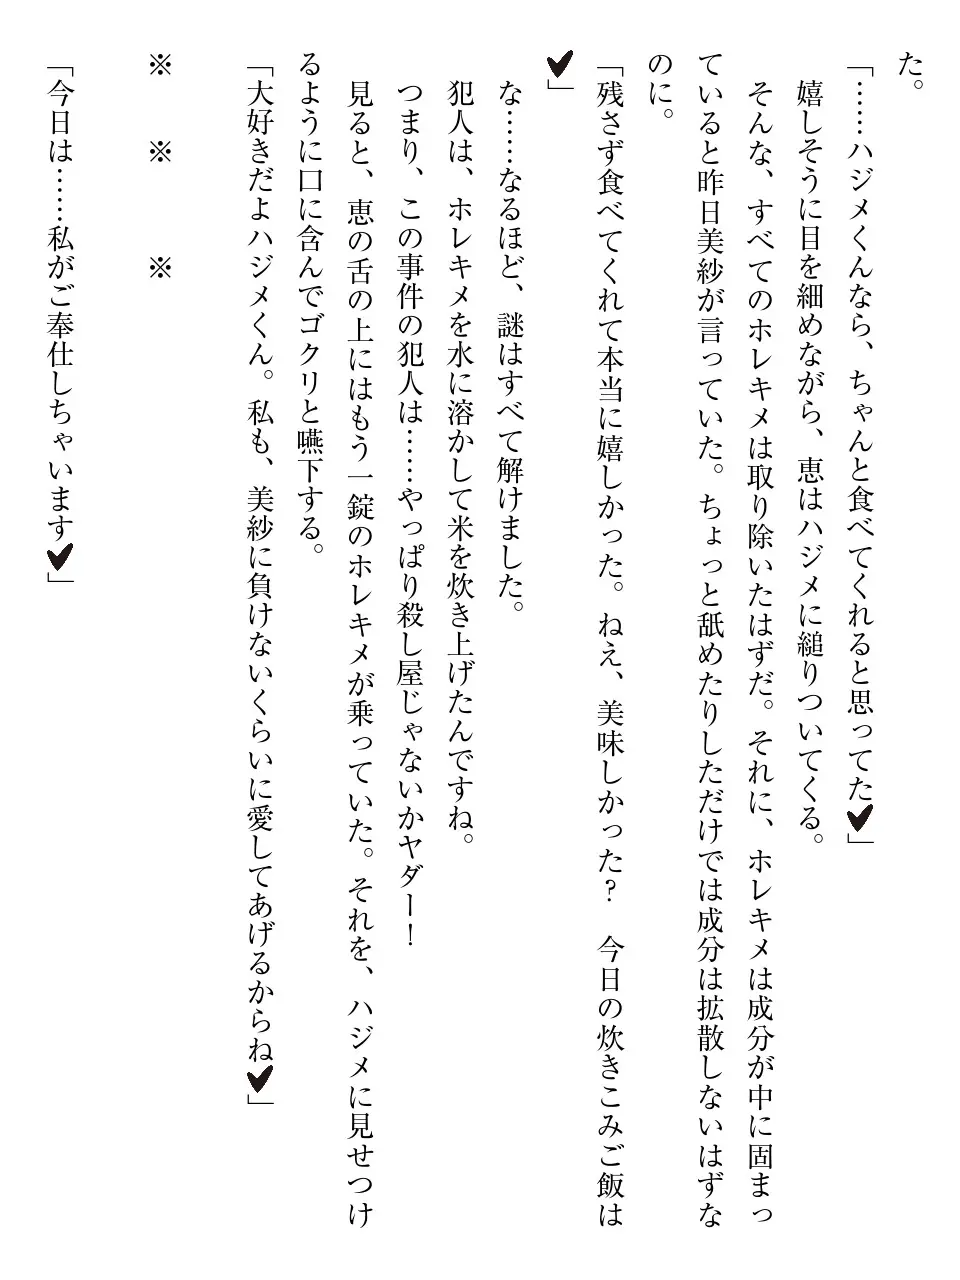 た。
「……ハジメくんなら、ちゃんと食べてくれると思ってた♥」
　嬉しそうに目を細めながら、恵はハジメに縋りついてくる。
　そんな、すべてのホレキメは取り除いたはずだ。それに、ホレキメは成分が中に固まっ
ていると昨日美紗が言っていた。ちょっと舐めたりしただけでは成分は拡散しないはずな
のに。
「残さず食べてくれて本当に嬉しかった。ねえ、美味しかった？　今日の炊きこみご飯は
♥」
　な……なるほど、謎はすべて解けました。
　犯人は、ホレキメを水に溶かして米を炊き上げたんですね。
　つまり、この事件の犯人は……やっぱり殺し屋じゃないかヤダー！
　見ると、恵の舌の上にはもう一錠のホレキメが乗っていた。それを、ハジメに見せつけ
るように口に含んでゴクリと嚥下する。
「大好きだよハジメくん。私も、美紗に負けないくらいに愛してあげるからね♥」
※　　※　　※
「今日は……私がご奉仕しちゃいます♥」